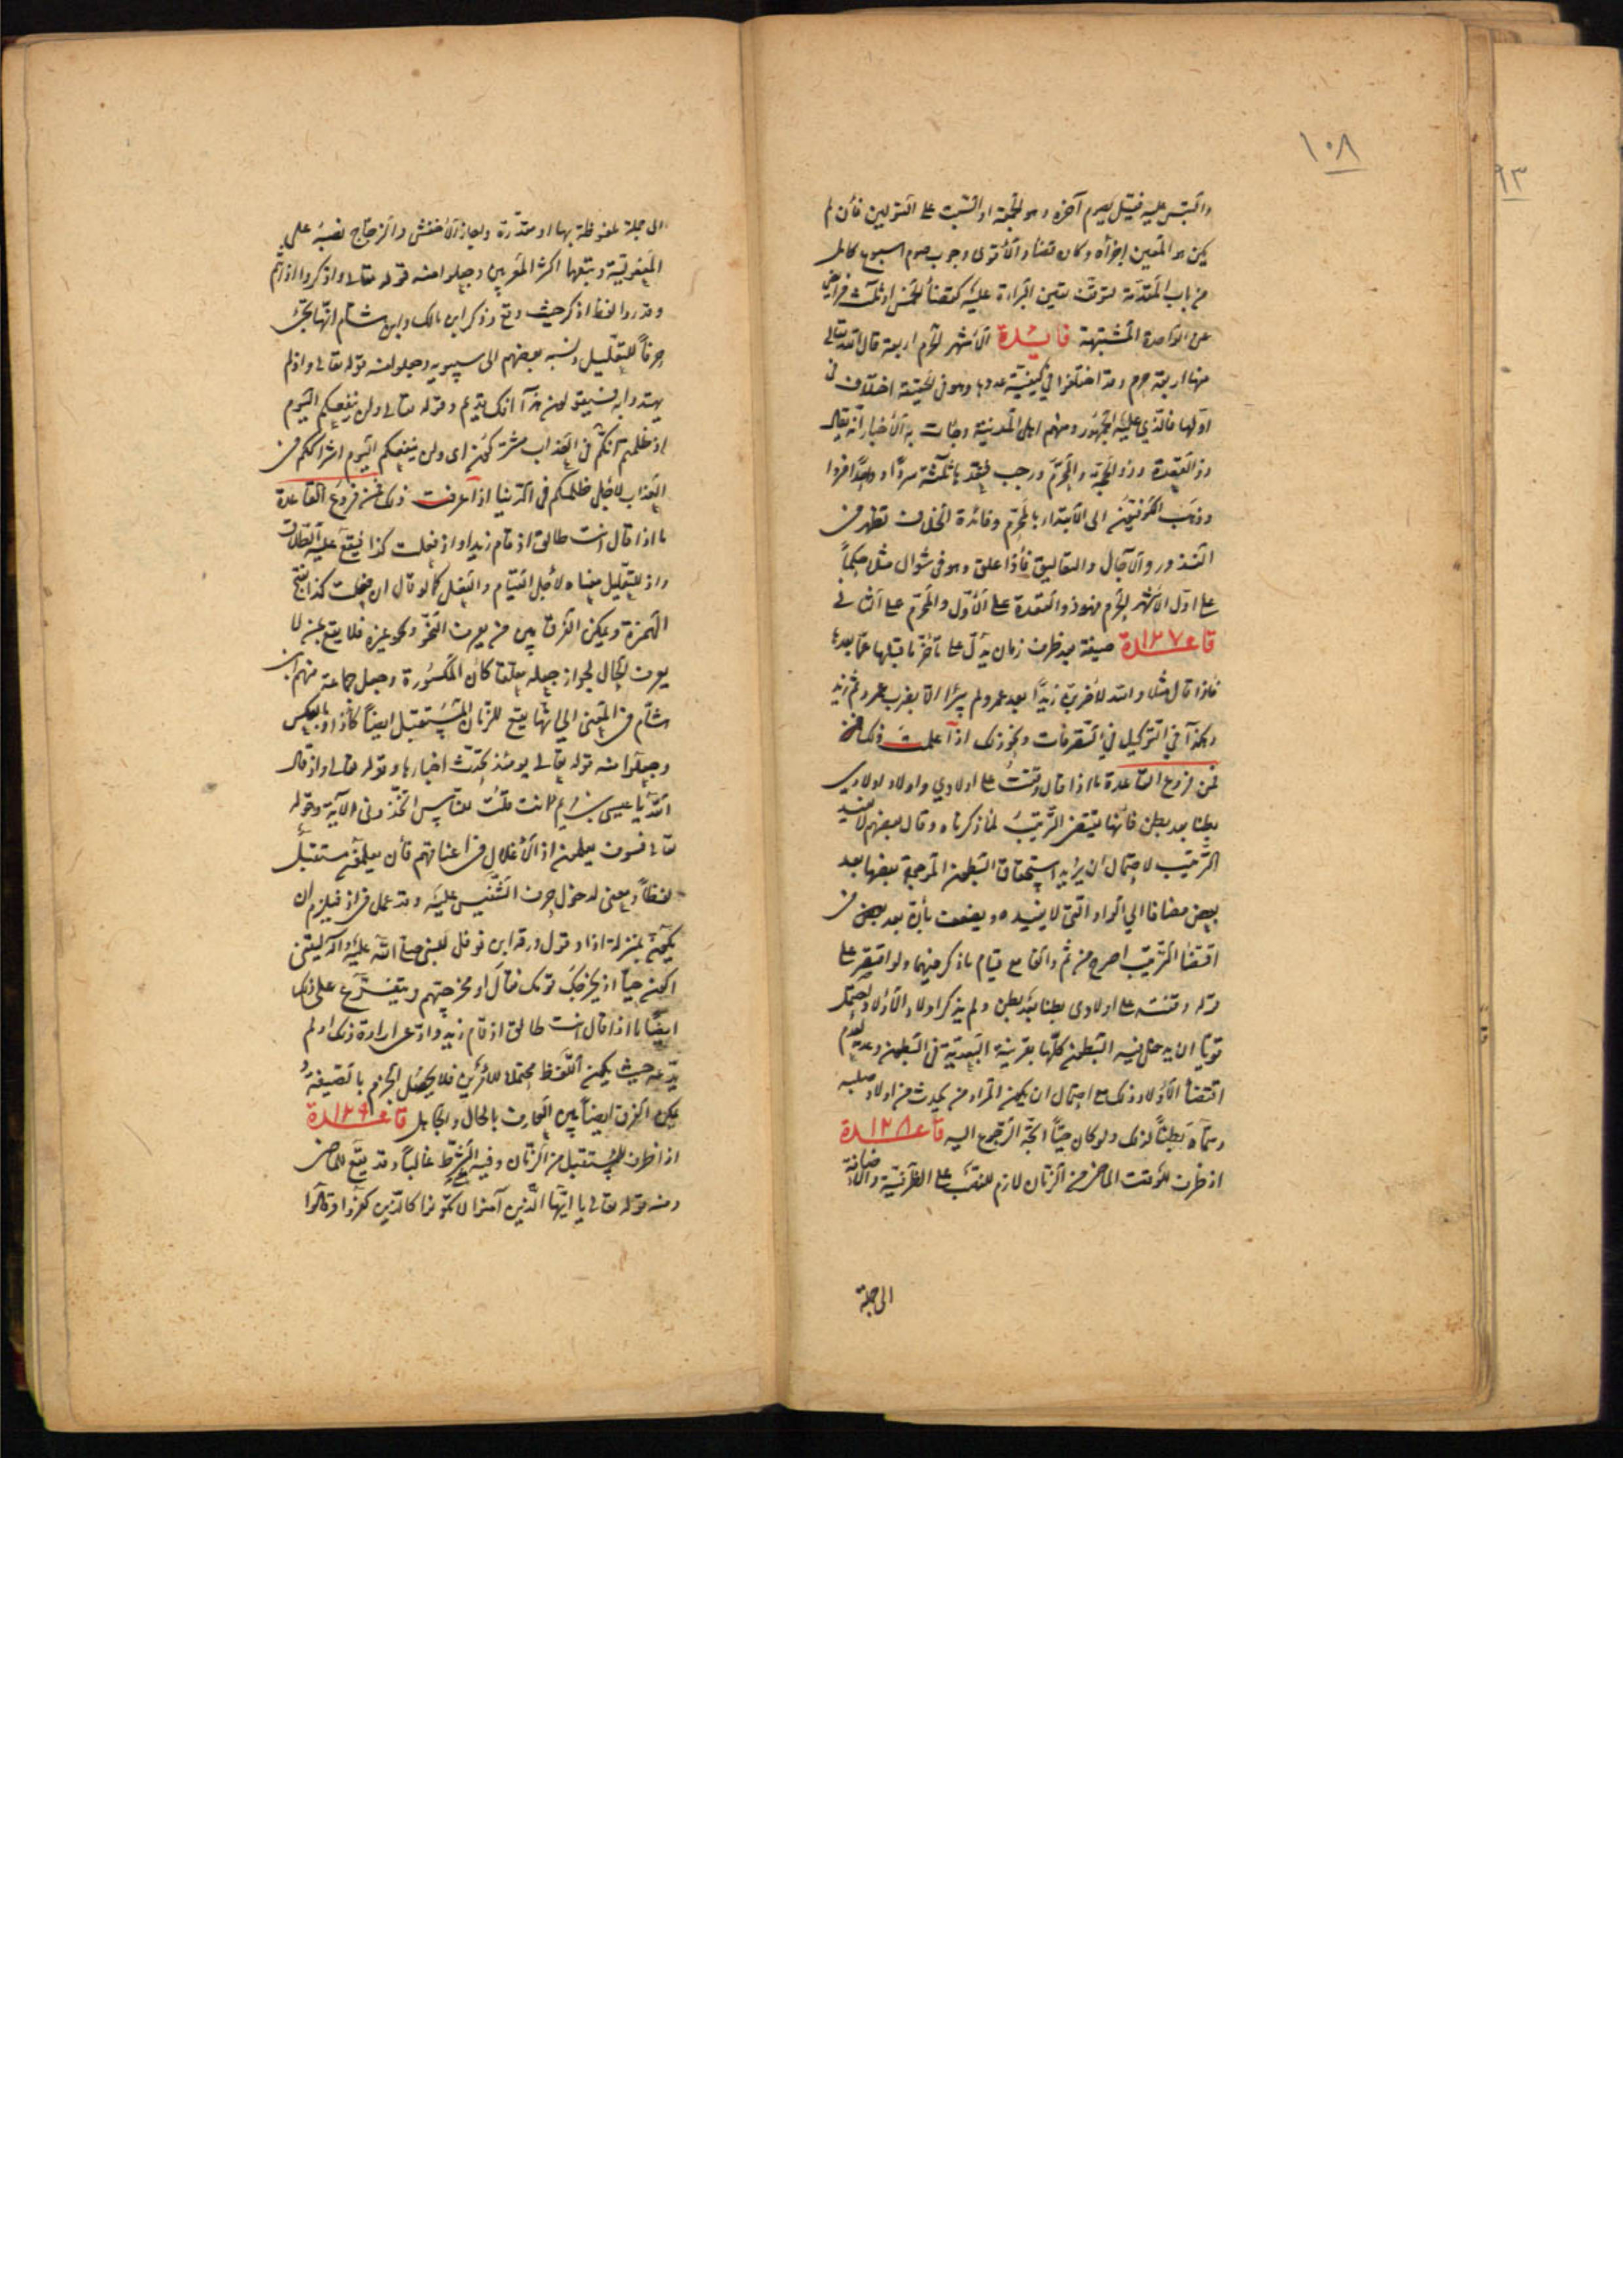 ١٠٨
٩٣
والتبس عليه فقيل يصوم آخره وهو الجمعة او السبت على القولين فأن لم
يكن هو المعين اجزأه وكان قضأ والأقوى وجوب صوم اسبوع كامل
من باب المقدمة لتوقف يقين البراءة عليه كقضأ الخمس او ثلث فرايض
عن الواحدة المشتبهة فايدة الأشهر الحرم اربعة قال الله تعالى
منها اربعة حرم وقد اختلفوا في كيفية عددها وهو في الحقيقة اختلاف في
اولها فالذي عليه الجمهور ومنهم اهل المدينة وجاءت به الأخبار انه يقال
ذو القعدة وذو الحجة والمحرم ورجب فتعد ثلثة سردا وواحدا فردا
وذهب الكوفيون الى الابتداء بالمحرم وفائدة الخلاف تظهر في
النذور والآجال والتعاليق فأذا علق وهو في شوال مثلا حكماً
على اول الأشهر الحرم فهو ذو القعدة على الأول والمحرم على الثاني
قاعدة ١٢٧ صيغة بعد ظرف زمان يدل على تأخر ما قبلها عما بعدها
فأذا قال مثلا والله لأضربن زيدا بعد عمرو لم يبرأ الا بضرب عمرو ثم زيد
وهكذا في التوكيل في التصرفات ونحو ذلك اذا علمت ذلك
فمن فروع القاعدة ما اذا قال وقفت على اولادي واولاد اولادي
بطنا بعد بطن فأنها يقتضي الترتيب لما ذكرناه وقال بعضهم لا يفيد
الترتيب لاحتمال ان يراد به استحقاق البطون المرجوة بعضها بعد
بعض مضافا الي الواو التي لا يفيده ويضعف بأن بعد بعض في
اقتضأ الترتيب اصرح من ثم والفا مع قيام ما ذكر فيهما ولو اقتصر على
قوله وقفته على اولادى بطنا بعد بطن ولم يذكر اولاد الأولاد يحتمل
قويا ان يدخل فيه البطون كلها بقرينة البعدية في البطون وعدمه لعدم
اقتضأ الأولاد ذلك مع احتمال ان يكون المراد من يحدث من اولاد صلبه
وسماه بطناً لذلك ولو كان حياً اتجه الرجوع اليه قاعدة ١٢٨
اذ ظرف للوقت الماضي من الزمان لازم للنصب على الظرفية والاضافة
الى جملة
الى جملة ملفوظة بها او مقدرة واجاز الأخفش والزجاج نصبه على
المفعولية وتبعهما اكثر المعربين وجعلوا منه قوله تعالى واذكروا اذ انتم
وقدروا لفظ اذكر حيث وقع وذكر ابن مالك وابن هشام انها تجئ
حرفاً للتعليل ونسبه بعضهم الى سيبويه وجعلوا منه قوله تعالى واذ لم
يهتدوا به فسيقولون هذا افك قديم وقوله تعالى ولن ينفعكم اليوم
اذ ظلمتم انكم في العذاب مشتركون اى ولن ينفعكم اليوم اشراككم في
العذاب لأجل ظلمكم في الدنيا اذا عرفت ذلك فمن فروع القاعدة
ما اذا قال انت طالق اذ قام زيد او اذ فعلت كذا فيقع عليه الطلاق
واذ للتعليل معناه لأجل القيام والفعل كما لو قال ان فعلت كذا بفتح
الهمزة ويمكن الفرق بين من يعرف النحو وغيره فلا يقع ممن لا
يعرف الحال لجواز جعله معلقا كان المكسورة وجعل جماعة منهم ابن
هشام في المغني الي انها يقع للزمان المستقبل ايضاً كأذا وبالعكس
وجعلوا منه قوله تعالى يومئذ تحدث اخبارها وقوله تعالى واذ قال
الله يا عيسى بن مريم ءانت قلت للناس اتخذوني الآية وقوله
تعالى فسوف يعلمون اذ الأغلال في اعناقهم فأن يعلمون مستقبل
لفظاً ومعنى لدخول حرف التنفيس عليه وقد عمل في اذ فيلزم ان
يكون بمنزلة اذا وقول ورقة ابن نوفل للنبي صلى الله عليه وآله ليتني
اكون حياً اذ يخرجك قومك فقال او مخرجي هم ويتفرع على ذلك
ايضاً ما اذا قال انت طالق اذ قام زيد وادعى ارادة ذلك او لم
يدعه حيث يكون اللفظ محتملا للأمرين فلا يحصل الجزم بالصيغة و
يمكن الفرق ايضاً بين العارف بالحال والجاهل قاعدة ١٢٩
اذا ظرف للمستقبل من الزمان وفيه معنى الشرط غالباً وقد يقع للماضي
ومنه قوله تعالى يا ايها الذين آمنوا لا تكونوا كالذين كفروا وقالوا